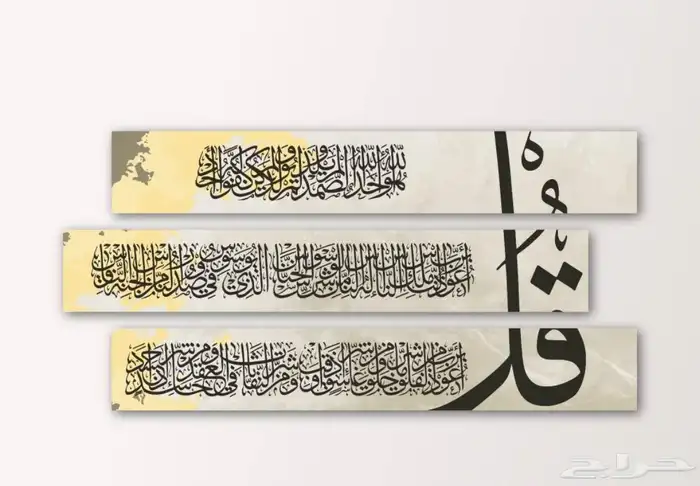 قُل
هو الله أحد الله الصمد لم يلد ولم يولد ولم يكن له كفوا أحد
أعوذ برب الناس ملك الناس إله الناس من شر الوسواس الخناس الذي يوسوس في صدور الناس من الجنة والناس
أعوذ برب الفلق من شر ما خلق ومن شر غاسق إذا وقب ومن شر النفاثات في العقد ومن شر حاسد إذا حسد
حراج